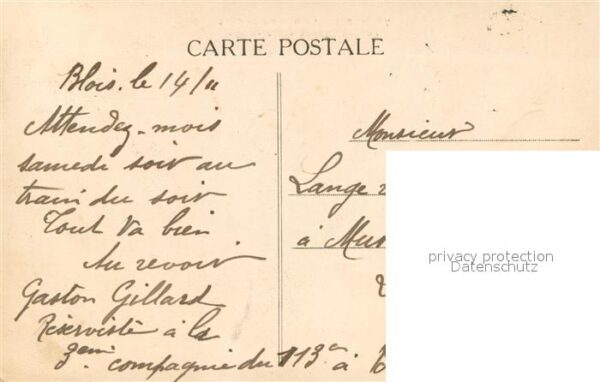 CARTE POSTALE
Blois. le 14/11
Attendez-mois
samedi soir au
train du soir
Tout va bien
Au revoir
Gaston Gillard
Réserviste à la
3eme compagnie du 113e à
Monsieur
Lange
à Mus
privacy protection
Datenschutz